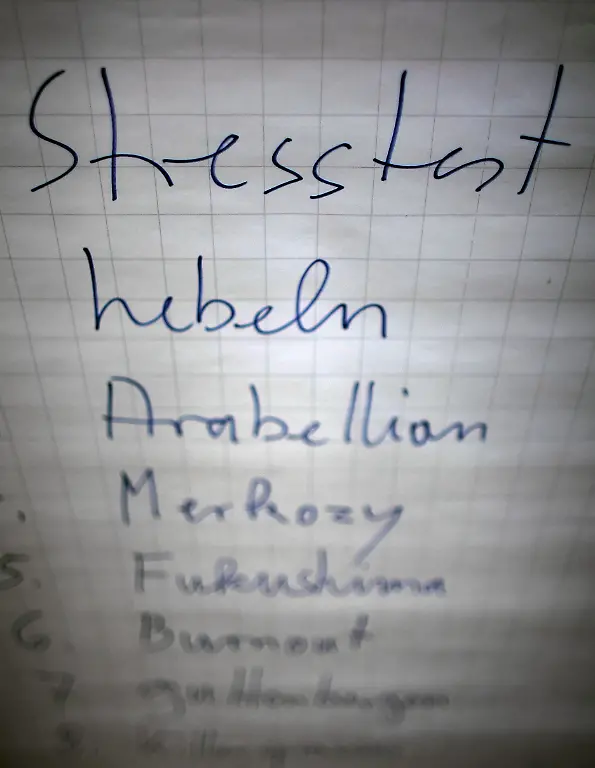 Stresstest
hebeln
Arabellion
Merkozy
5. Fukushima
6. Burnout
7 guttenbergen
8.